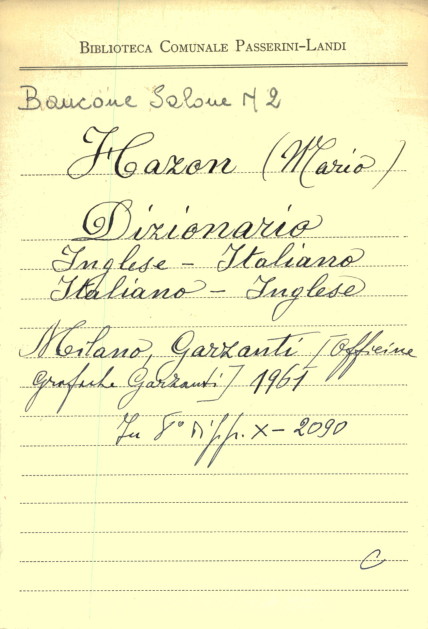 BIBLIOTECA COMUNALE PASSERINI-LANDI
Bancone Salone N 2
Hazon (Mario)
Dizionario
Inglese - Italiano
Italiano - Inglese
Milano, Garzanti [Officine
Grafiche Garzanti] 1961
In 8° pp. X - 2090
C